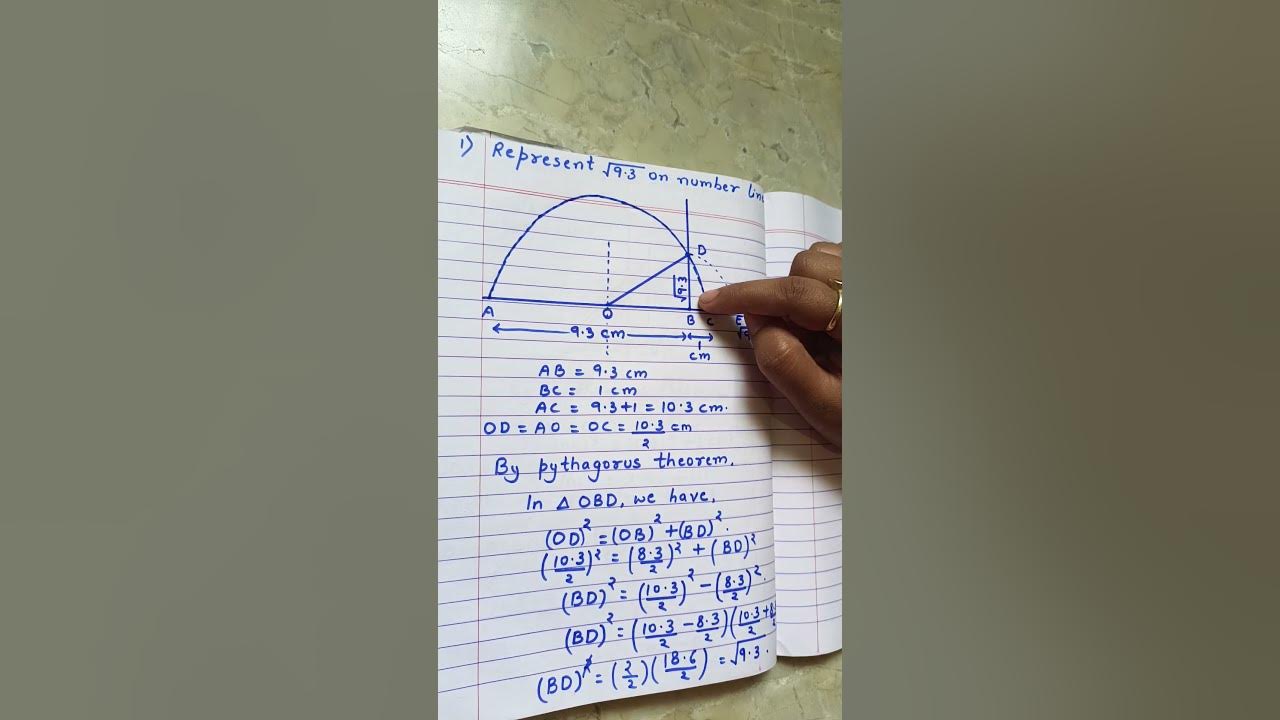 1) Represent √9.3 on number line
D
√9.3
A O B C E
9.3 cm 1 cm
AB = 9.3 cm
BC = 1 cm
AC = 9.3+1 = 10.3 cm.
OD = AO = OC = 10.3/2 cm
By pythagorus theorem.
In △ OBD, we have,
(OD)² = (OB)² + (BD)².
(10.3/2)² = (8.3/2)² + (BD)²
(BD)² = (10.3/2)² - (8.3/2)².
(BD)² = (10.3/2 - 8.3/2)(10.3/2 +
(BD) = (2/2)(18.6/2) = √9.3.